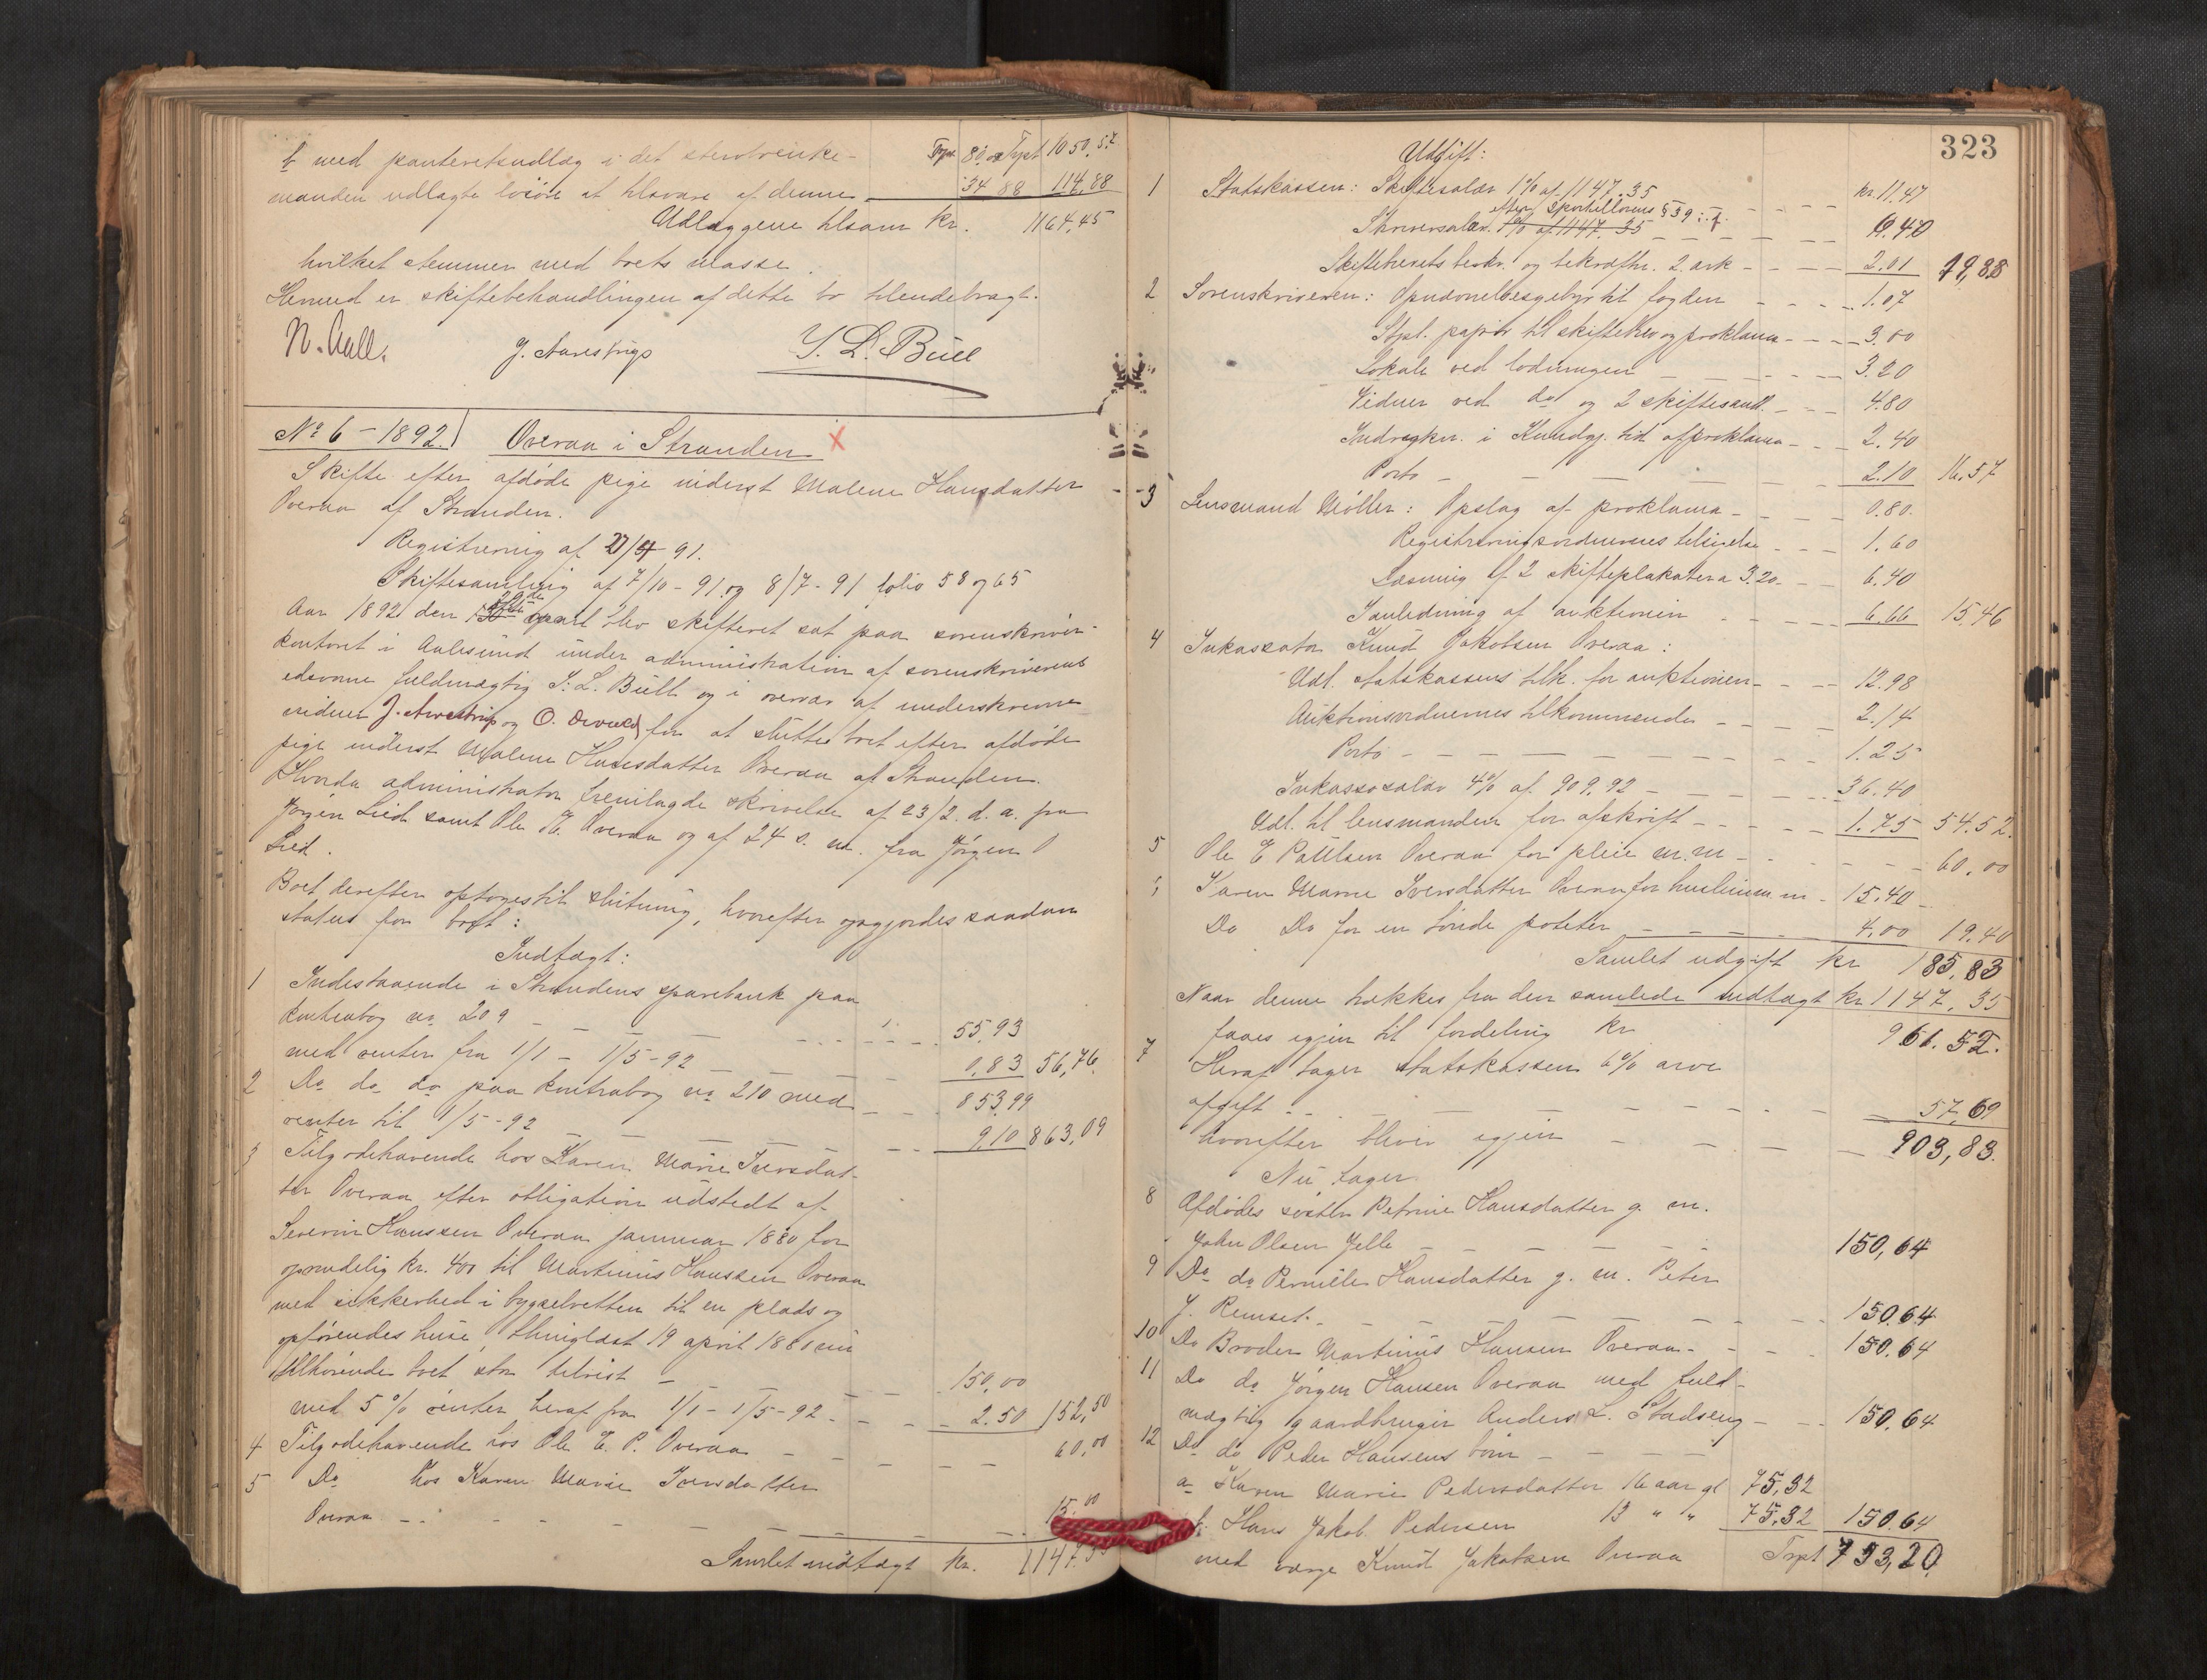 b med panteretsudlæg i det
manden udlagte løsøre at tilsvare af denne
Trpt. 80,00 Trpt 1050,57
34 88 114,88
Udlæggene tilsam kr. 1164,45
hvilket stemmer med boets masse.
Hermed er skiftebehandlingen af dette bo tilendebragt.
N. Aall. J. Aarestrup J. L. Büll
No 6 - 1892. Overaa i Stranden X
Skifte efter afdøde pige inderst Malene Hansdatter
Overaa af Stranden.
Registrering af 27/4 91.
Skiftesamling af 7/10 - 91 og 8/7 - 91 folio 58 og 65
Aar 1892 den 29de april blev skifteret sat paa sorenskriver-
kontoret i Aalesund under administration af sorenskriverens
edsvorne fuldmægtig J. L. Büll og i overvær af underskrevne
vidner J. Aarestrup og O. for at slutte boet efter afdøde
pige inderst Malene Hansdatter Overaa af Stranden.
Hvorda administrator fremlagde skrivelse af 23/2 d. a. fra
Jørgen Lied samt Ole E. Overaa og af 24 s. m. fra Jørgen
Lied.
Boet derefter optoges til slutning, hvorefter opgjordes saadan
status for boet:
Indtægt:
1 Indestaaende i Strandens sparebank paa
kontrabog no 209 - - - 55,93
med renter fra 1/1 - 1/5 - 92 - - - 0,83 56,76
2 Do do do paa kontrabog no 210 med - - 853,99
renter til 1/5 - 92 - - - 9,10 863,09
3 Tilgodehavende hos Karen Marie Iversdat-
ter Overaa efter obligation udstedt af
Severin Hanssen Overaa januar 1880 for
oprindelig kr. 400 til Martinus Hanssen Overaa
med sikkerhed i bygselretten til en plads og
opførendes huse, thinglæst 19 april 1880 nu
tilhørende boet som tilrest - - - 150,00
med 5 % renter heraf fra 1/1 - 1/5 - 92 - - - 2.50 152,50
4 Tilgodehavende hos Ole E. P. Overaa - - - 60,00
5 Do hos Karen Marie Iversdatter
Overaa - - - 15,00
Samlet indtægt kr. 1147,35
323
Udgift:
1 Statskassen: Skiftesalær 1% af 1147.35 - - - kr. 11,47
efter Sportellovens § 39 i. f.
Skriversalær 1% af 1147.35 - - - 6.40
Skiftebrevets beskr. og bekræftn. 2 ark - - - 2.01 19,88
2 Sorenskriveren: Opnævnelsesgebyr til fogden - - - 1.07
Stpl. papir til skiftebrev og proklama - - - 3.00
Lokale ved lodningen - - - 3.20
Vidner ved do og 2 skiftesaml. - - - 4.80
Indrykn. i Kundgj. tid. af proklama - - 2.40
Porto - - - 2.10 16.57
3 Lensmand Møller: Opslag af proklama - - - 0.80.
Registreringsvidnernes tilsigelse - - - 1.60
Læsning af 2 skifteplakater a 3.20 - - 6.40
Indledning af auktionen - - - 6.66 15.46
4 Inkassator Knud Jakobsen Overaa:
Udl. statskassens tilk. for auktionen - - - 12.98
Auktionsvidnernes tilkommende - - - 2.14
Porto - - - 1.25
Inkassosalær 4% af 909.92 - - - 36.40
Udl. til lensmanden for afskrift - - - 1.75 54.52.
5 Ole E Paulsen Overaa for pleie m.m. - - - 60.00
6 Karen Marie Iversdatter Overaa for husleie m.m - 15.40 -
Do Do for en tønde poteter - - - 4.00 19.40
Samlet udgift kr 185,83
Naar denne trækkes fra den samlede indtægt kr 1147,35
faaes igjen til fordeling kr 961.52.
7 Heraf tager statskassen 6% arve
afgift - - - 57,69
hvorefter bliver igjen - - - 903,83.
Nu tager
8 Afdødes søster Petrine Hansdatter g. m.
John Olsen Jelle - - - 150,64
9 Do do Pernille Hansdatter g. m. Peter
J. Remset. - - - 150.64
10 Do Broder Martinus Hansen Overaa - - - 150.64
11 Do do Jørgen Hansen Overaa med fuld-
mægtig gaardbruger Anders L. Stadseng - - - 150.64
12 Do do Peder Hansens børn - - -
a Karen Marie Pedersdatter 16 aar gl 75,32
b. Hans Jakob Pedersen 13 " " 75,32 150.64
med værge Knud Jakobsen Overaa Trpt 753,20